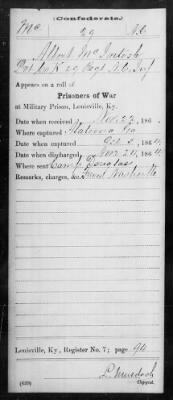 (Confederate.)
Mc 29 N.C.
Albert McIntosh
Pvt Co K 29 Regt N.C. Inf
Appears on a roll of
Prisoners of War
at Military Prison, Louisville, Ky.
Date when received Nov. 22, 186
Where captured Altoona Ga
Date when captured Oct. 5, 1864
Date when discharged Nov. 24, 1864
Where sent Camp Douglas
Remarks, charges, &c. From Nashville
Louisville, Ky., Register No. 7; page 94
L. Murdoch
(639) Copyist.